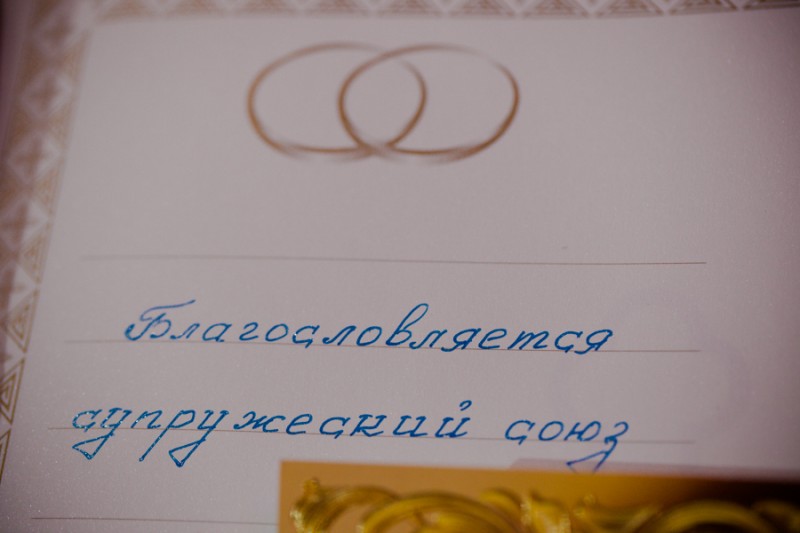 Благословляется
супружеский союз